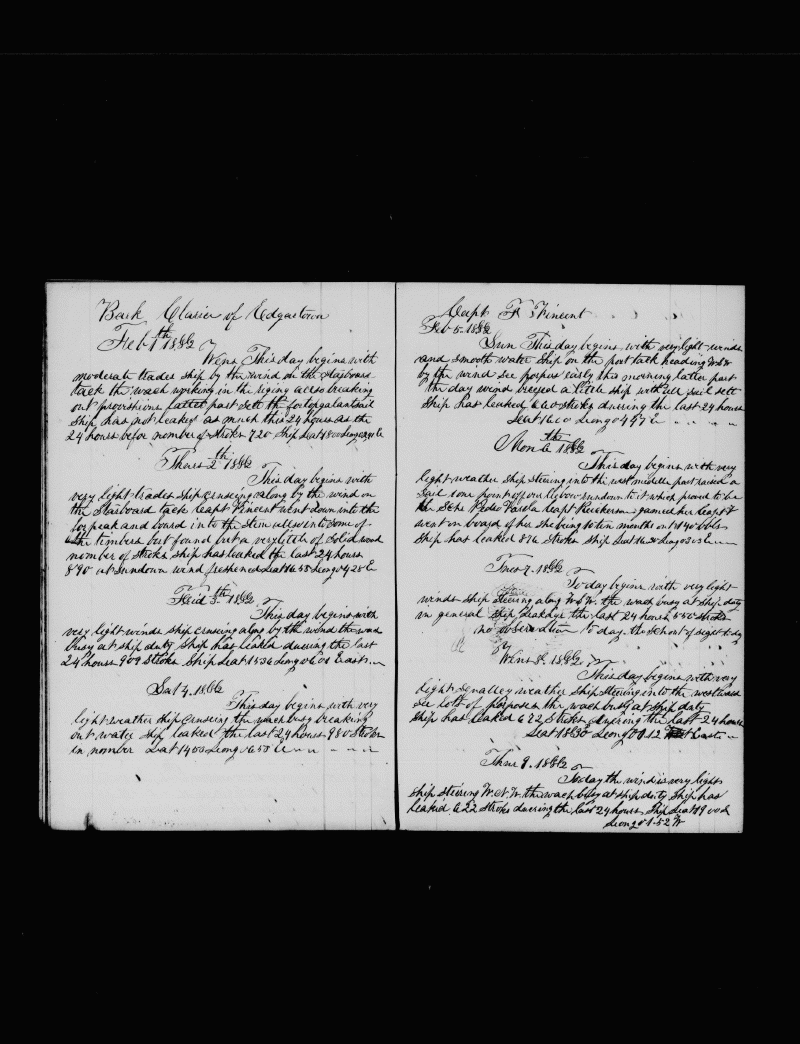 Bark Clarice of Edgartown
Feb 1th 1882
Wens This day begins with
moderate trades ship by the wind on the starboard
tack the wach working in the riging acrso breaking
out provisions latter part sett the foretopgalantsail
ship has not leaked as much this 24 hours as the
24 hours befor nomber of strokes 720 Ship Leat
Thurs 2th 1882
This day begins with
very light trades ship crusing along by the wind on
the Starboard tack Capt Vincent went down into the
forpeak and board into the Stem allso into some of
the timbers but found but a very litele of Solid wood
nomber of strokes ship has leaked the last 24 hours
890 at sundown wind freshened Leat
Frid 3th 1882
This day begins with
very light winds ship crusing along by the wind the wach
busy at ship duty Ship has leaked duering the last
24 hours 909 Stroks Ship Leat 1536 Leong 0600 East
Sat 4. 1882
This day begins with very
light weather ship cruseing the wach busy breaking
out water ship leaked the last 24 hours 980 Strokes
in nomber Leat 1400 Leong 0650 E
Capt F Vincent
Feb 5. 1882
Sun This day begins with very light winds
and smooth water Ship on the port tack heading
by the wind see porpus early this morning latter part
the day wind breezed a litele ship with all sail sett
Ship has leaked 660 strokes duering the last 24 hours
Leat 1600 Leong 0457 E
Mon 6th 1882
This day begins with very
light weather ship steering into the west middle part raised a
Sail some point off our lebow sundown to it which proved to be
the Schr Pedro Varela Capt gamed her Capt F
went on board of her She being 10 ten months out 140 bbls
Ship has leaked 876 Strokes Ship Leat 1620 Leong
Tues 7. 1882
To day begins with very light
winds ship steering along W S W. the wach busy at ship duty
in general ship leakage the last 24 hours 850 stroks
no observation to day the Schort of sight to day
Wens 8. 1882
This day begins with very
light weather Ship Steering into the westward
see lots of Porposes the wach busy at Ship duty
Ship has leaked 672 Strokes duering the last 24 hours
Leat Leong 0012 East
Thur 9. 1882
To day the wind is very light
ship steering W. N. W. the wach busy at ship duty Ship has
leaked 622 Stroks duering the last 24 hours Ship Leat
Leong 01-52 W